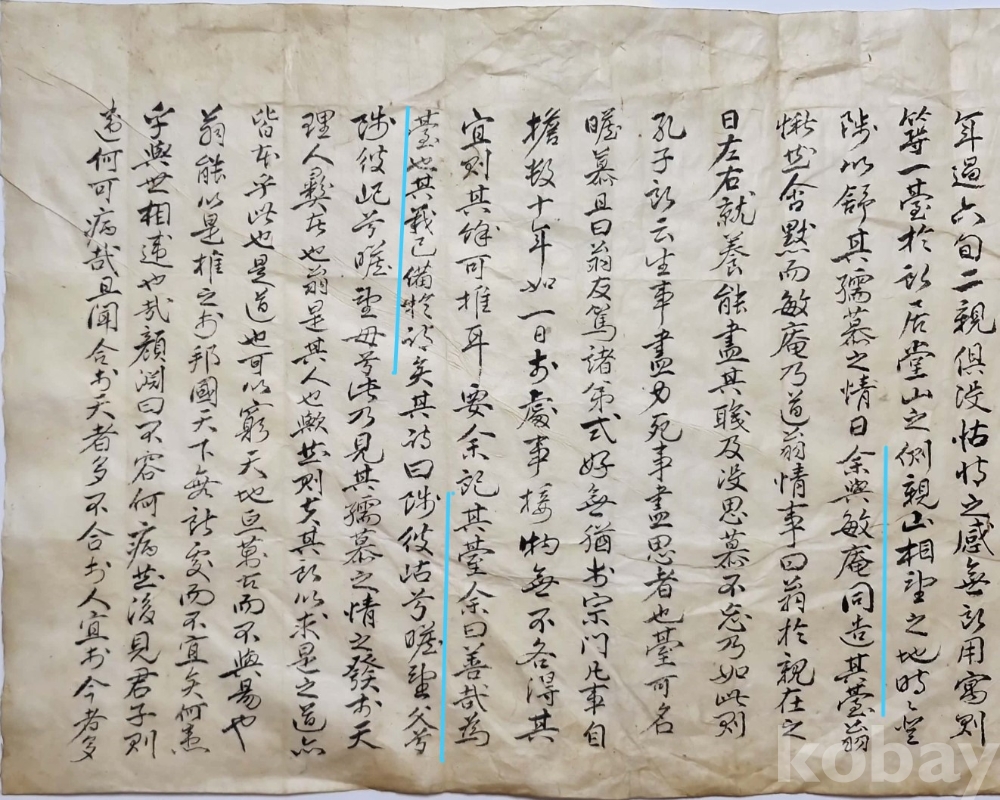 年過六旬二親俱沒怙恃之感無所用寓則
築一臺於所居堂山之側親山相望之地時々登
陟以舒其孺慕之情日余與敏庵同造其臺翁
愀然含默而敏庵乃道翁情事曰翁於親在之
日左右就養能盡其職及沒思慕不忘乃如此則
孔子所云生事盡力死事盡思者也臺可名
瞻慕且曰翁友篤諸弟式好無猶於宗門凡事自
擔數十年如一日於處事接物無不各得其
宜則其餘可推耳要余記其臺余曰善哉為
臺也其義已備於詩矣其詩曰陟彼岵兮瞻望父兮
陟彼屺兮瞻望母兮此乃見其孺慕之情之發於天
理人彝者也翁是其人也歟然則夫其所以求是之道亦
皆本乎此也是道也可以窮天地亘萬古而不與易也
翁能以是推之於邦國天下無所處而不宜矣何患
乎與世相違也哉顏淵曰不容何病然後見君子則
違何可病哉且聞合於天者多不合於人宜於今者多
kobay